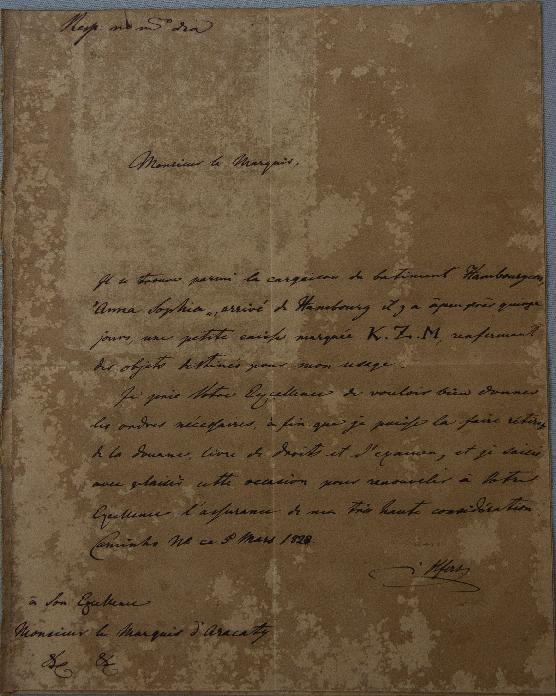 Resp. no mmo dia
Monsieur le Marquis,
Il se trouve parmi la cargaison du batiment Hambourgeois
"Anna Sophia", arrivé de Hambourg il y a àpeu près quinze
jours, une petite caisse marquée K.Z.M, renfermant
des objets destinés pour mon usage.
Je prie Votre Excellence de vouloir bien donner
les ordres nécessaires, à fin que je puisse la faire retirer
de la douane, livre de droits et d'examen, et je saisis
avec plaisir cette occasion pour renouveler à Votre
Excellence l'assurance de ma très haute considération
Caminho ce 5 Mars 1828
à Son Excellence
Monsieur le Marquis d'Aracaty
&c &c